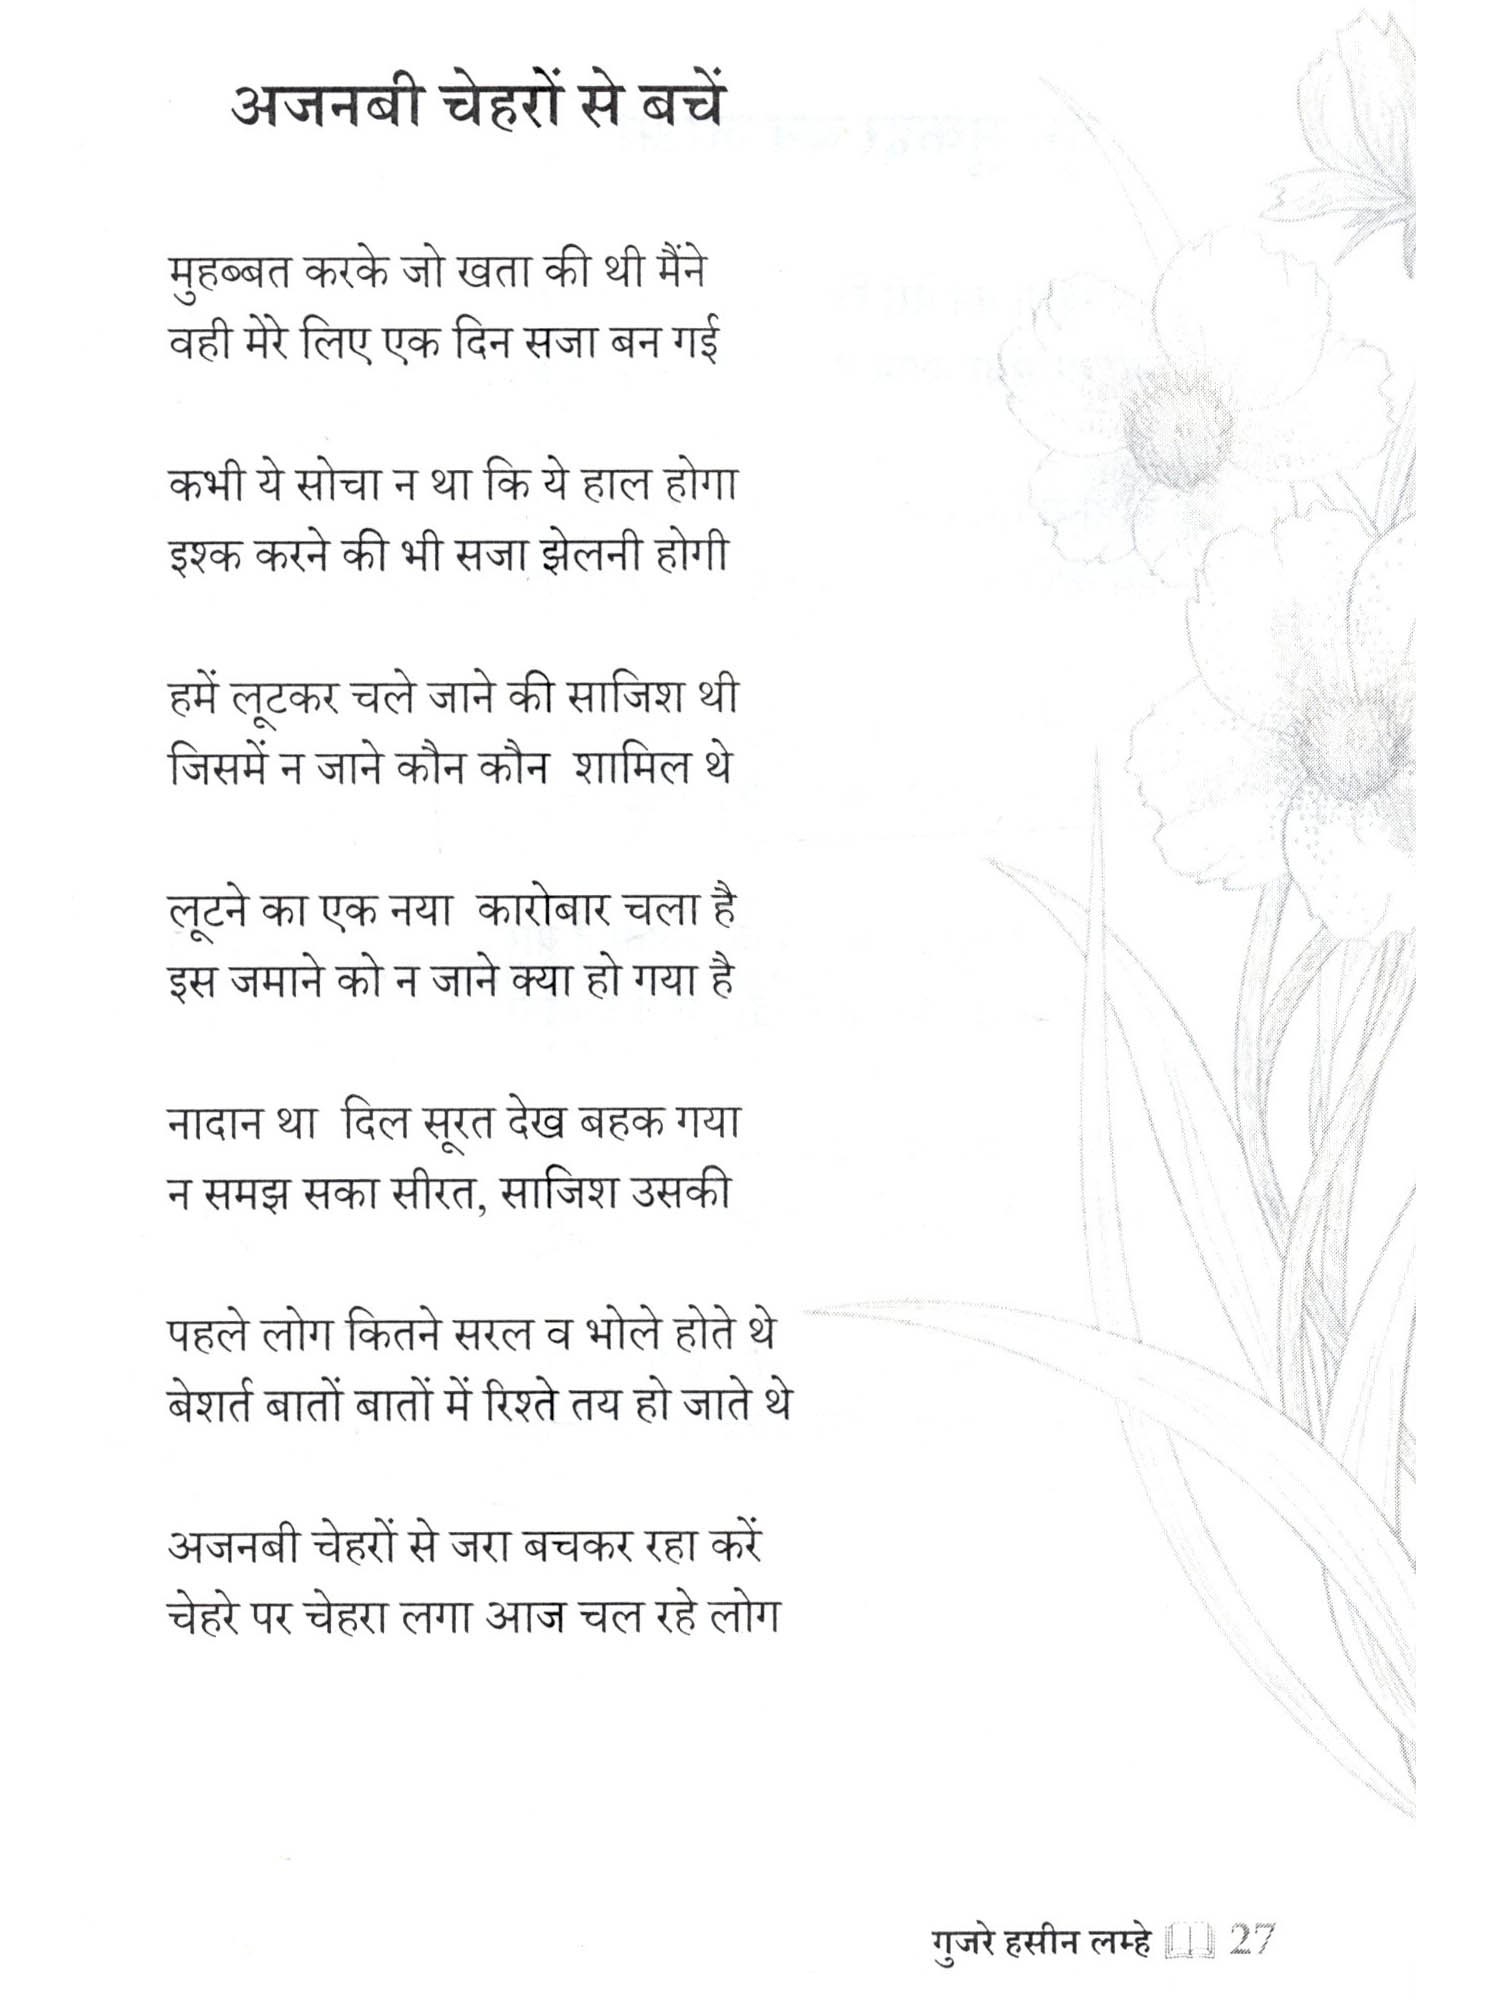 अजनबी चेहरों से बचें
मुहब्बत करके जो खता की थी मैंने
वही मेरे लिए एक दिन सजा बन गई
कभी ये सोचा न था कि ये हाल होगा
इश्क करने की भी सजा झेलनी होगी
हमें लूटकर चले जाने की साजिश थी
जिसमें न जाने कौन कौन शामिल थे
लूटने का एक नया कारोबार चला है
इस जमाने को न जाने क्या हो गया है
नादान था दिल सूरत देख बहक गया
न समझ सका सीरत, साजिश उसकी
पहले लोग कितने सरल व भोले होते थे
बेशर्त बातों बातों में रिश्ते तय हो जाते थे
अजनबी चेहरों से जरा बचकर रहा करें
चेहरे पर चेहरा लगा आज चल रहे लोग
गुजरे हसीन लम्हे 27